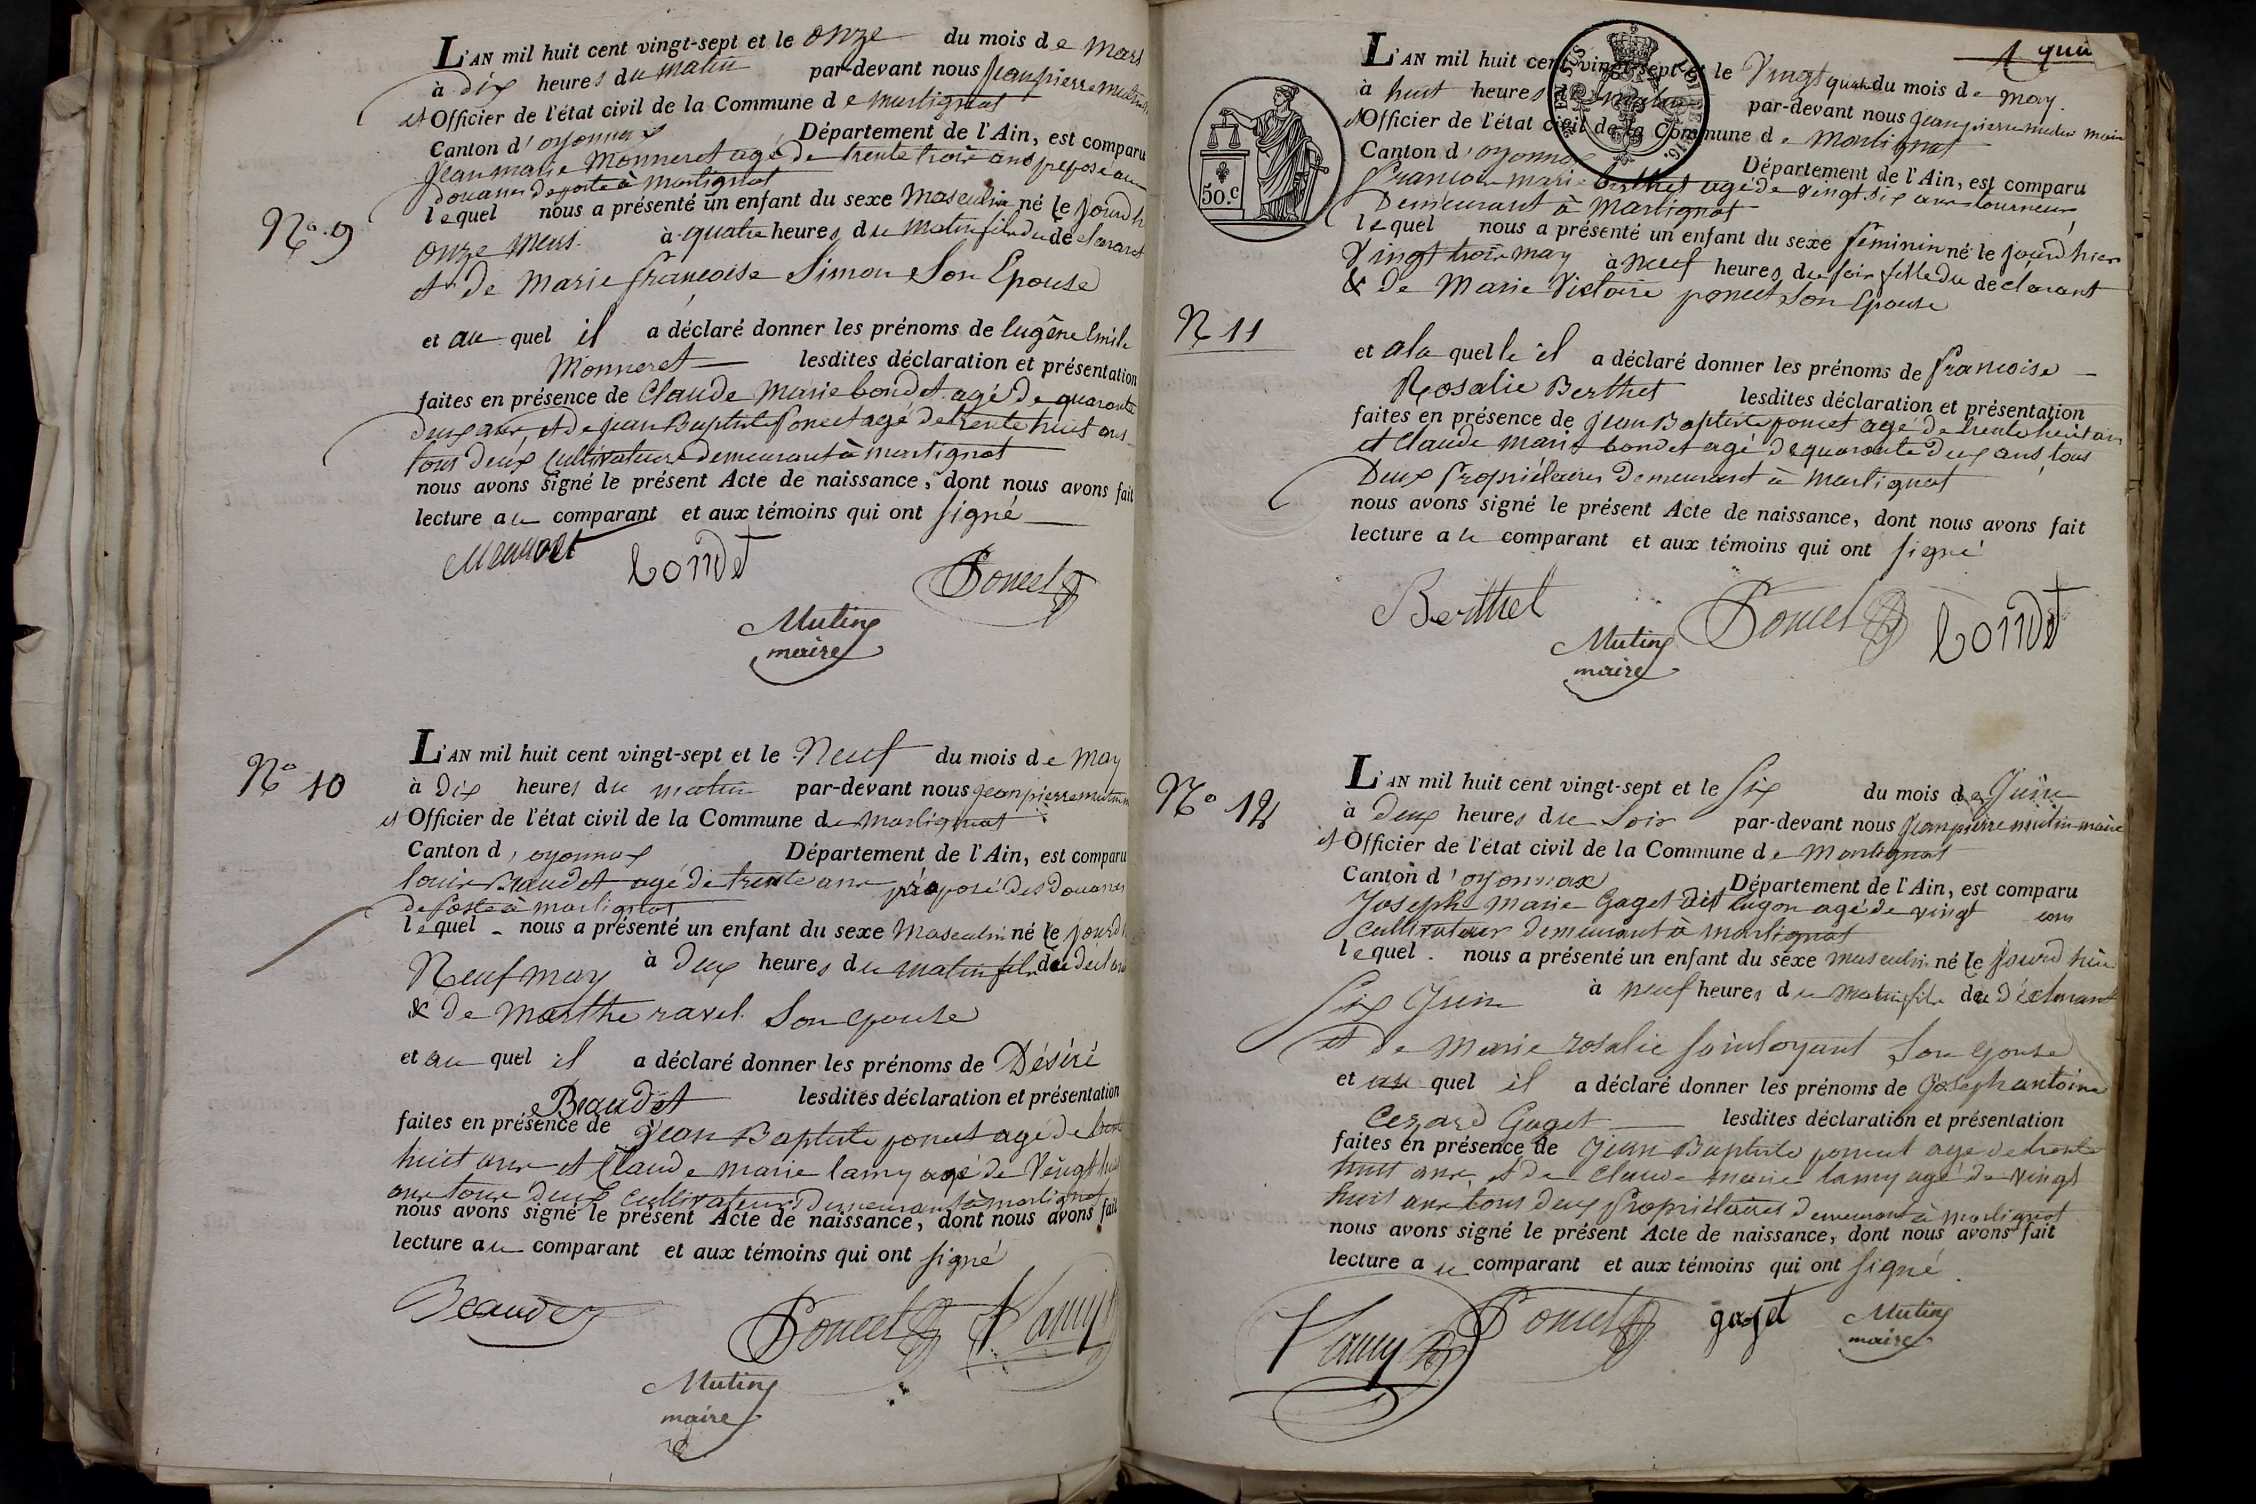 N.o 9
L'AN mil huit cent vingt-sept et le onze du mois de mars
à dix heures du matin par-devant nous Jean pierre mutin
et Officier de l'état civil de la Commune de martignat
Canton d'oyonnax Département de l'Ain, est comparu
Jean marie Monneret agé de trente trois ans préposé aux
douanes de poste à martignat
lequel nous a présenté un enfant du sexe Masculin né le jourd'h
onze mars à quatre heures du matin fils du déclarant
et de Marie françoise Simon Son Epouse
et au quel il a déclaré donner les prénoms de Eugêne Emile
Monneret lesdites déclaration et présentation
faites en présence de Claude Marie bondet agé de quarante
deux ans, et de jean Baptiste Poncet agé de trente huit ans
tous deux Cultivateurs demeurant à martignat
nous avons signé le présent Acte de naissance, dont nous avons fait
lecture au comparant et aux témoins qui ont signé
Monneret bondet Poncet
Mutin
maire
N.o 10
L'AN mil huit cent vingt-sept et le Neuf du mois de may
à Dix heures du matin par-devant nous jean pierre mutin
et Officier de l'état civil de la Commune de Martignat
Canton d'oyonnax Département de l'Ain, est comparu
louis Beaudet agé de trente ans préposé des Douanes
de Poste à martignat
lequel nous a présenté un enfant du sexe Masculin né le jourd'h
Neuf may à deux heures du matin fils du déclarant
& de Marthe ravel Son epouse
et au quel il a déclaré donner les prénoms de Désiré
Beaudet lesdites déclaration et présentation
faites en présence de jean Baptiste poncet agé de trente
huit ans et Claude marie lamy agé de Vingt huit
ans tous deux cultivateurs demeurant à martignat
nous avons signé le présent Acte de naissance, dont nous avons fait
lecture au comparant et aux témoins qui ont signé
Beaudet Poncet Lamy
Mutin
maire
50.c
N 11
L'AN mil huit cent vingt-sept et le Vingt quatre du mois de may
à huit heures du matin par-devant nous jean pierre mutin maire
et Officier de l'état civil de la Commune de Martignat
Canton d'oyonnax Département de l'Ain, est comparu
francois marie berthet agé de vingt six ans tourneur
Demeurant à Martignat
lequel nous a présenté un enfant du sexe féminin né le jourd'hier
Vingt trois may à neuf heures du soir fille du déclarant
& de Marie Victoire poncet Son Epouse
et a la quelle il a déclaré donner les prénoms de francoise
Rosalie Berthet lesdites déclaration et présentation
faites en présence de jean Baptiste poncet agé de trente huit ans
et Claude Marie bondet agé de quarante deux ans, tous
Deux Propriétaires Demeurant à Martignat
nous avons signé le présent Acte de naissance, dont nous avons fait
lecture au comparant et aux témoins qui ont signé
Berthet Poncet bondet
Mutin
maire
N.o 12
L'AN mil huit cent vingt-sept et le Six du mois de Juin
à deux heures du Soir par-devant nous jean pierre mutin maire
et Officier de l'état civil de la Commune de Martignat
Canton d'oyonnax Département de l'Ain, est comparu
Joseph Marie Gaget dit lugon agé de vingt ans
Cultivateur demeurant à Martignat
lequel nous a présenté un enfant du sexe masculin né le jourd'hui
Six Juin à neuf heures du matin fils du Déclarant
et de Marie rosalie Sointoyant Son epouse
et au quel il a déclaré donner les prénoms de Joseph antoine
Cezard Gaget lesdites déclaration et présentation
faites en présence de jean Baptiste poncet agé de trente
huit ans, et de Claude marie lamy agé de vingt
huit ans tous deux Propriétaires demeurant à Martignat
nous avons signé le présent Acte de naissance, dont nous avons fait
lecture au comparant et aux témoins qui ont signé
Lamy Poncet gaget Mutin
maire